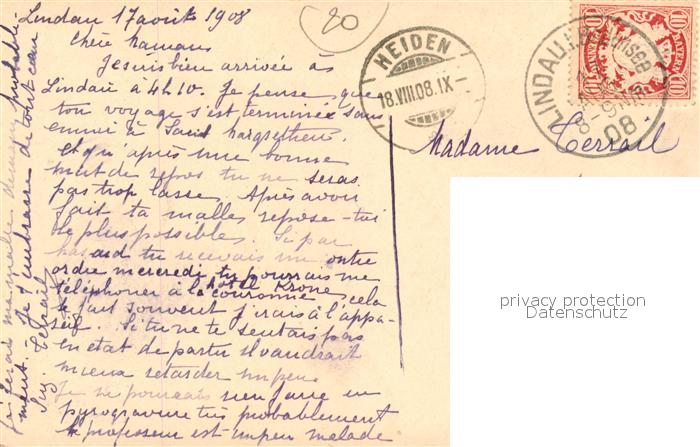 Lindau 17 août 1908
20
Chère maman
Je suis bien arrivée à
Lindau à 4h10. Je pense que
ton voyage s'est terminée sans
ennui à
Et qu'après une bonne
nuit de repos tu ne seras
pas trop lasse. Après avoir
fait ta malles repose-toi
le plus possibles. Si par
hasard tu recevais un contre
ordre mercredi tu pourrais me
téléphoner à l'hôtel Krone
couronne, cela
se fait souvent j'irais à l'appa-
reil. Si tu ne te sentais pas
en état de partir il vaudrait
mieux retarder un peu
Je ne pourrais rien faire en
pyrogravure très probablement
le professeur est un peu malade
j'ai ferais ma malle demain probable-
ment. Je t'embrasse de tout cœur
Terrail
HEIDEN
18.VIII.08.IX-
LINDAU
08
BAYERN
10
PFENNIG
10
Madame Terrail
privacy protection
Datenschutz